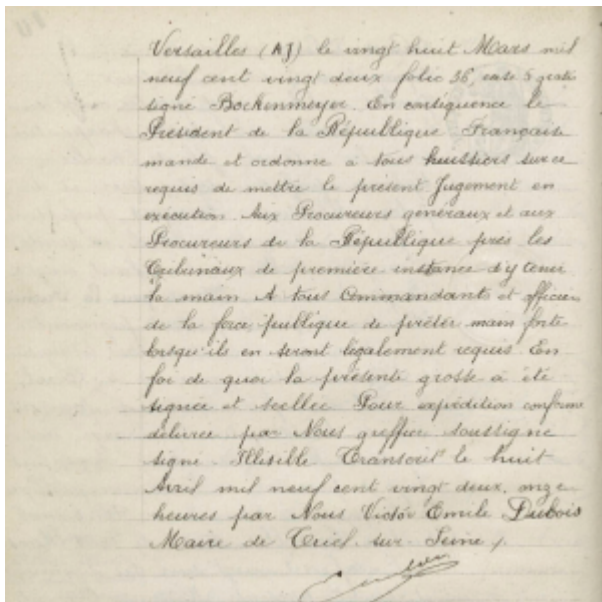 Versailles (AJ) le vingt huit Mars mil
neuf cent vingt deux folio 36, case 5 gratis
signé Bockenmeyer. En conséquence le
Président de la République Française
mande et ordonne à tous huissiers sur ce
requis de mettre le présent Jugement en
exécution Aux Procureurs généraux et aux
Procureurs de la République près les
Tribunaux de première instance d'y tenir
la main A tous Commandants et officiers
de la force publique de prêter main forte
lorsqu'ils en seront légalement requis. En
foi de quoi la présente grosse a été
signée et scellée Pour expédition conforme
délivrée par Nous greffier soussigné
signé Illisible Transcrit le huit
Avril mil neuf cent vingt deux, onze
heures par Nous Victor Emile Dubois
Maire de Triel sur Seine /.